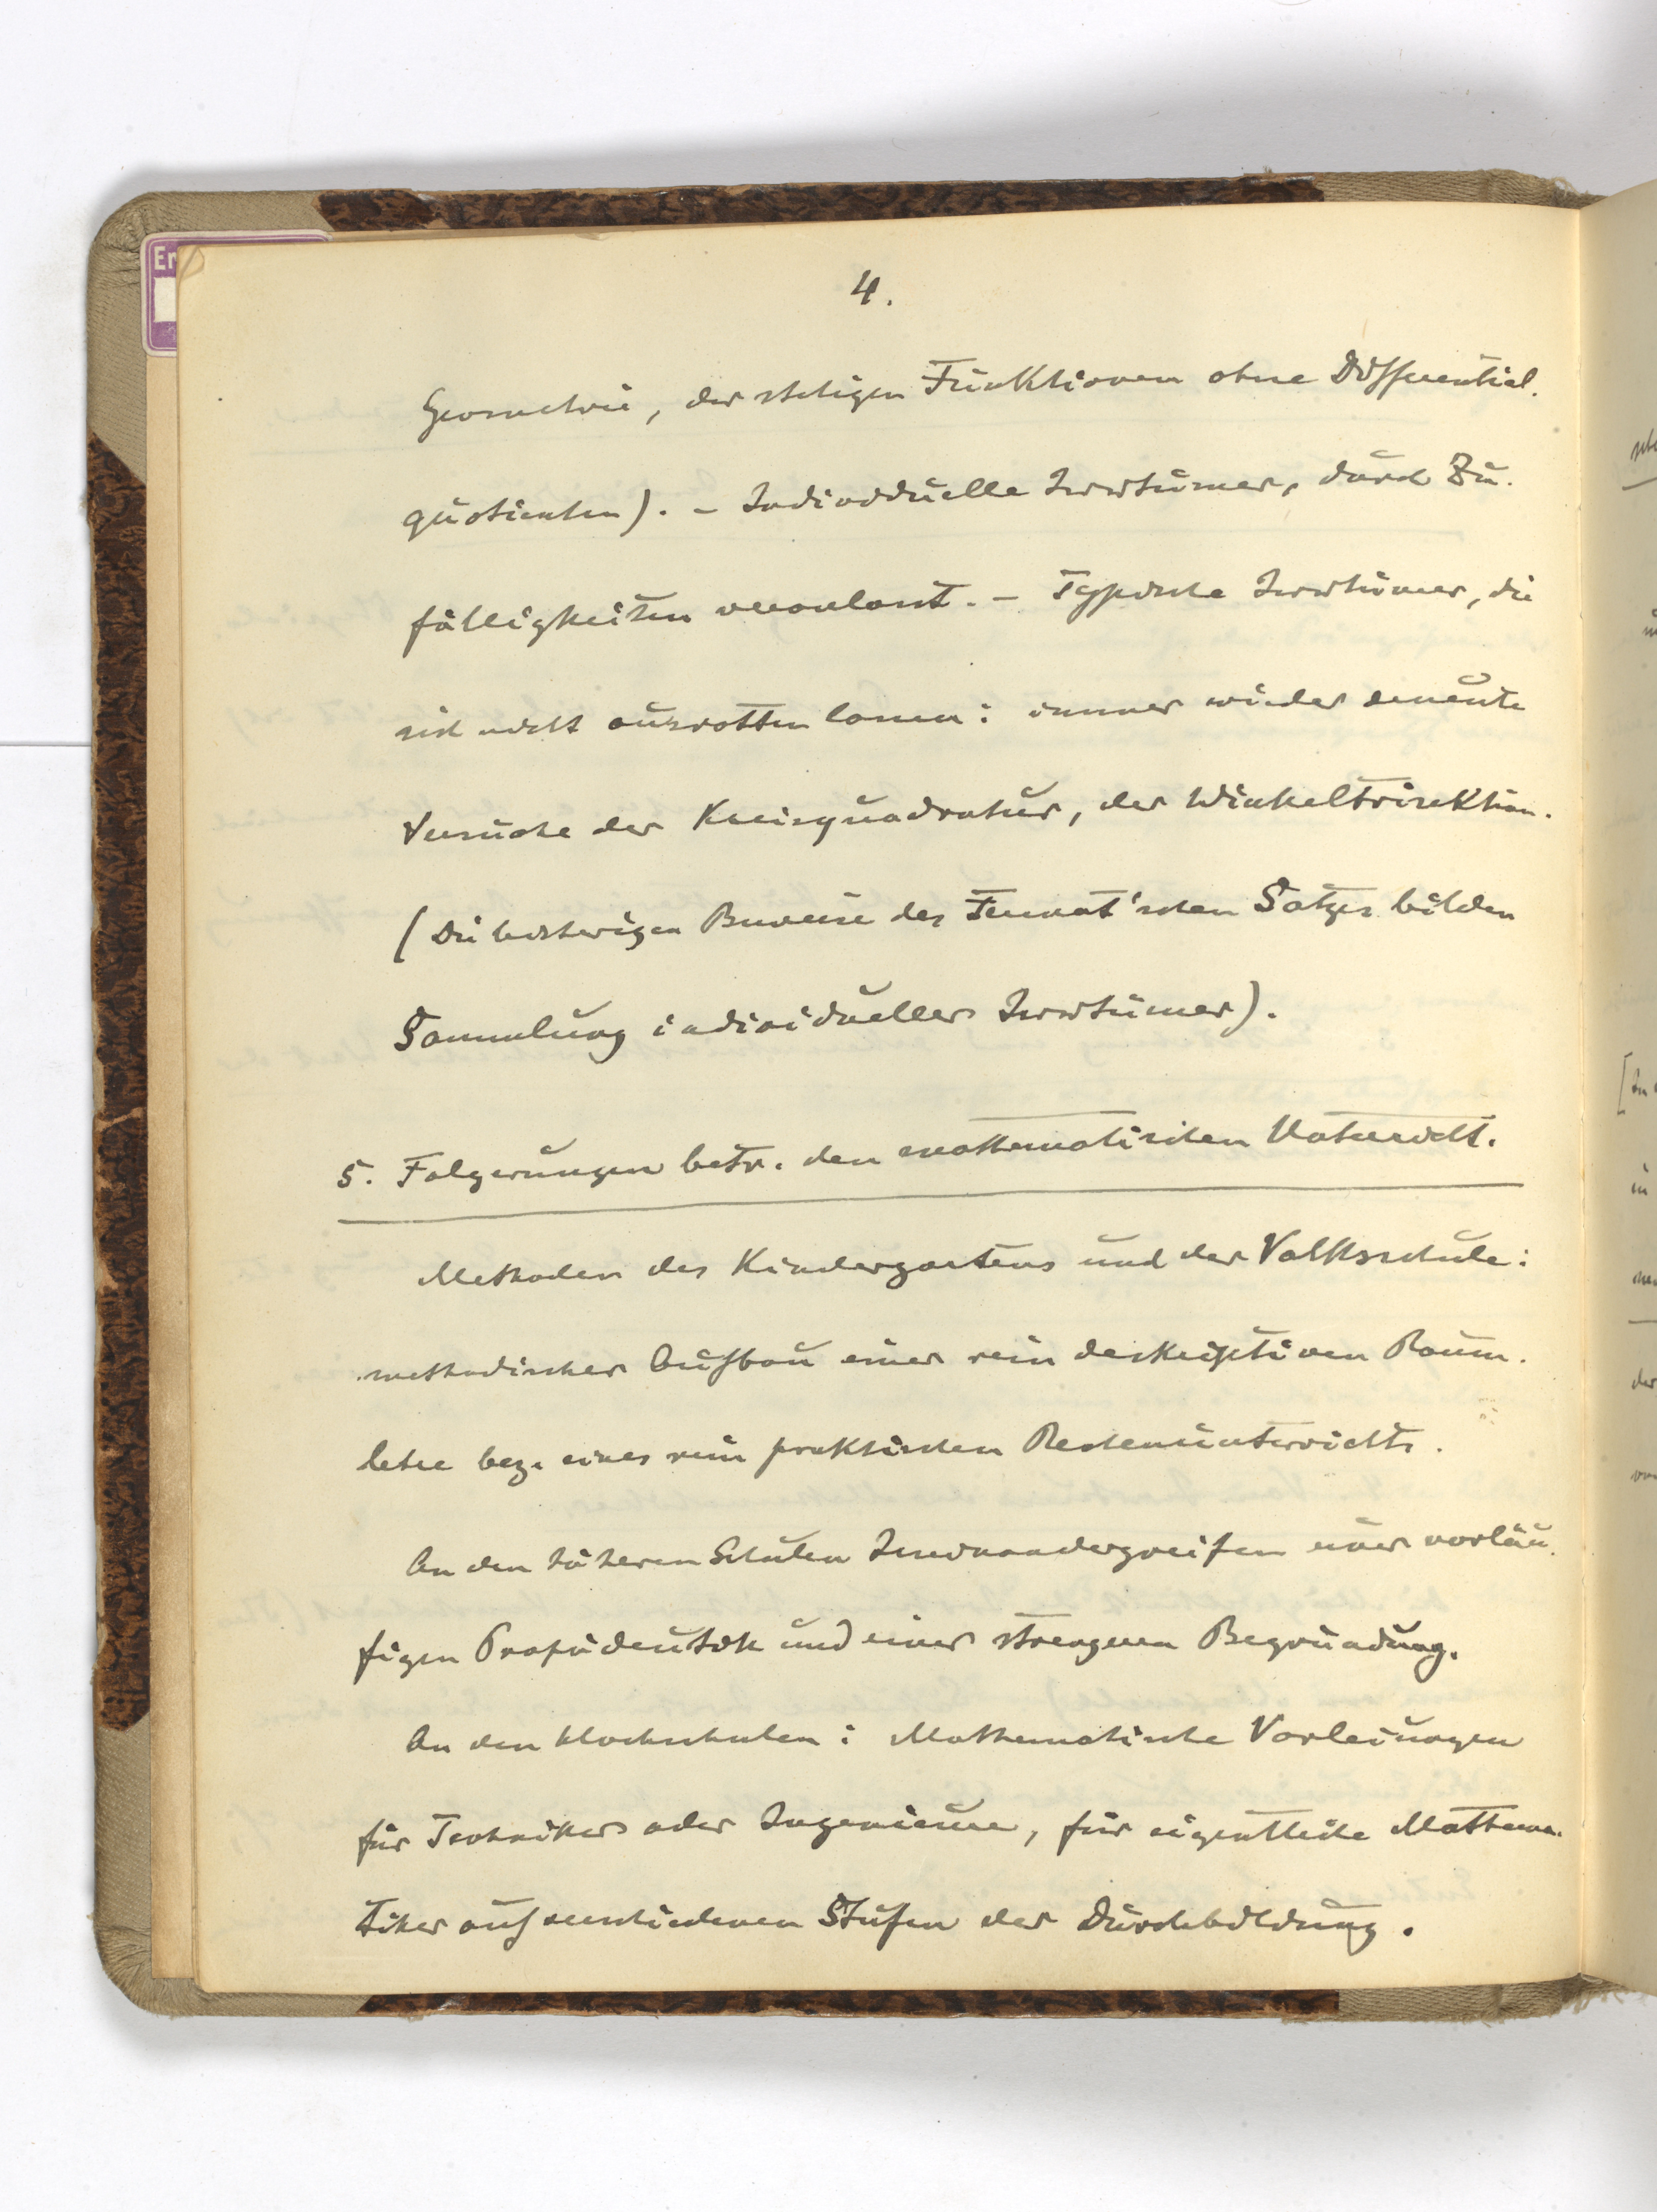 En
4.
Geometrie, der stetigen Funktionen ohne Differential-
quotienten). - Individuelle Irrtümer, durch Zu-
fälligkeiten veranlasst. - Typische Irrtümer, die
sich nicht ausrotten lassen: immer wieder erneute
Versuche der Kreisquadratur, der Winkeltrisektion.
(Die bisherigen Beweise des Fermat'schen Satzes bilden
Sammlung individueller Irrtümer).
5. Folgerungen betr. den mathematischen Unterricht.
Methoden des Kindergartens und der Volksschule:
methodischer Aufbau einer rein deskriptiven Raum-
lehre bez. eines rein praktischen Rechenunterrichts.
An den höheren Schulen Ineinandergreifen einer vorläu-
figen Propädeutik und einer strengeren Begründung.
An den Hochschulen: Mathematische Vorlesungen
für Techniker oder Ingenieure, für eigentliche Mathema-
tiker auf verschiedenen Stufen der Durchbildung.